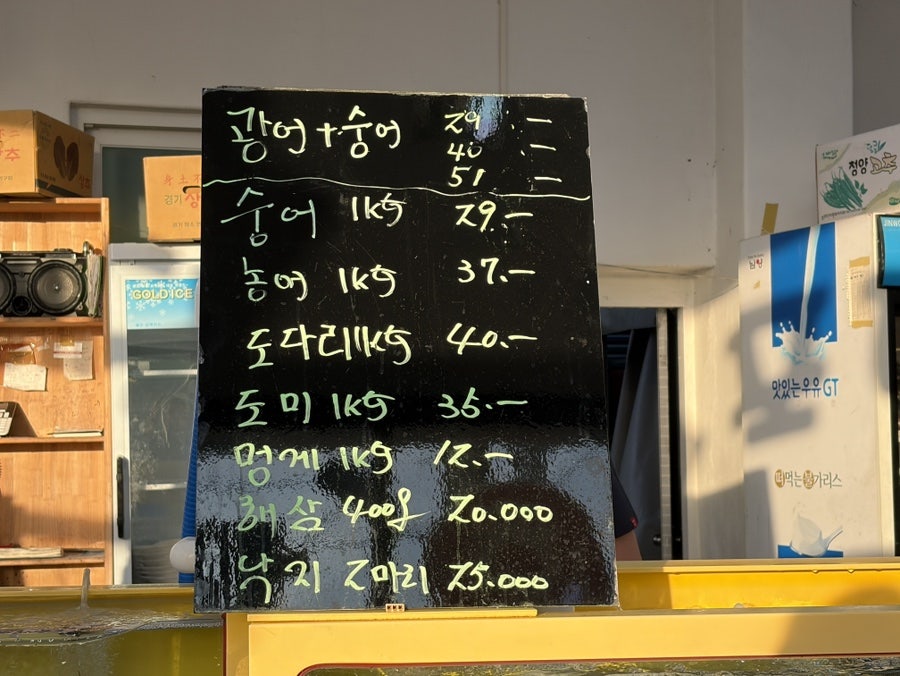 광어+숭어 29.–
40.–
51 –
숭어 1kg 29.–
농어 1kg 37.–
도다리 1kg 40.–
도미 1kg 35.–
멍게 1kg 12.–
해삼 400g 20.000
낙지 2마리 25.000
GOLD ICE
추
경기
청양고추
맛있는우유GT
떠먹는불가리스